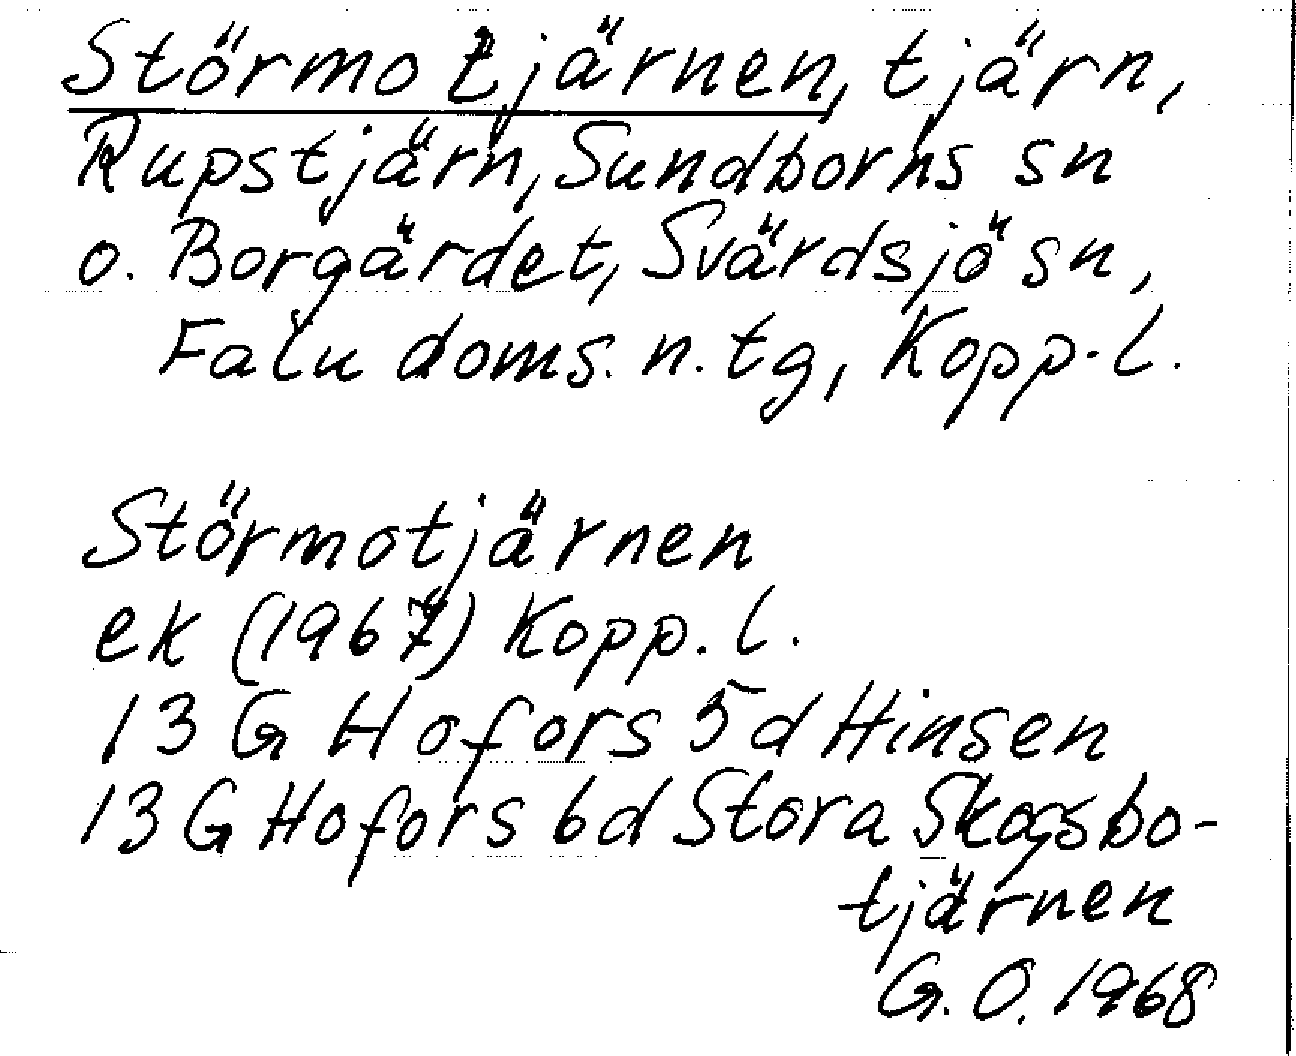 Störmotjärnen, tjärn,
Rupstjärn, Sundborns sn
o. Borgärdet, Svärdsjö sn,
Falu doms. n. tg, Kopp. l.
Störmotjärnen
ek (1967) Kopp. l.
13 G Hofors 5 d Hinsen
13 G Hofors 6d Stora Skogsbo-
tjärnen
G. O. 1968